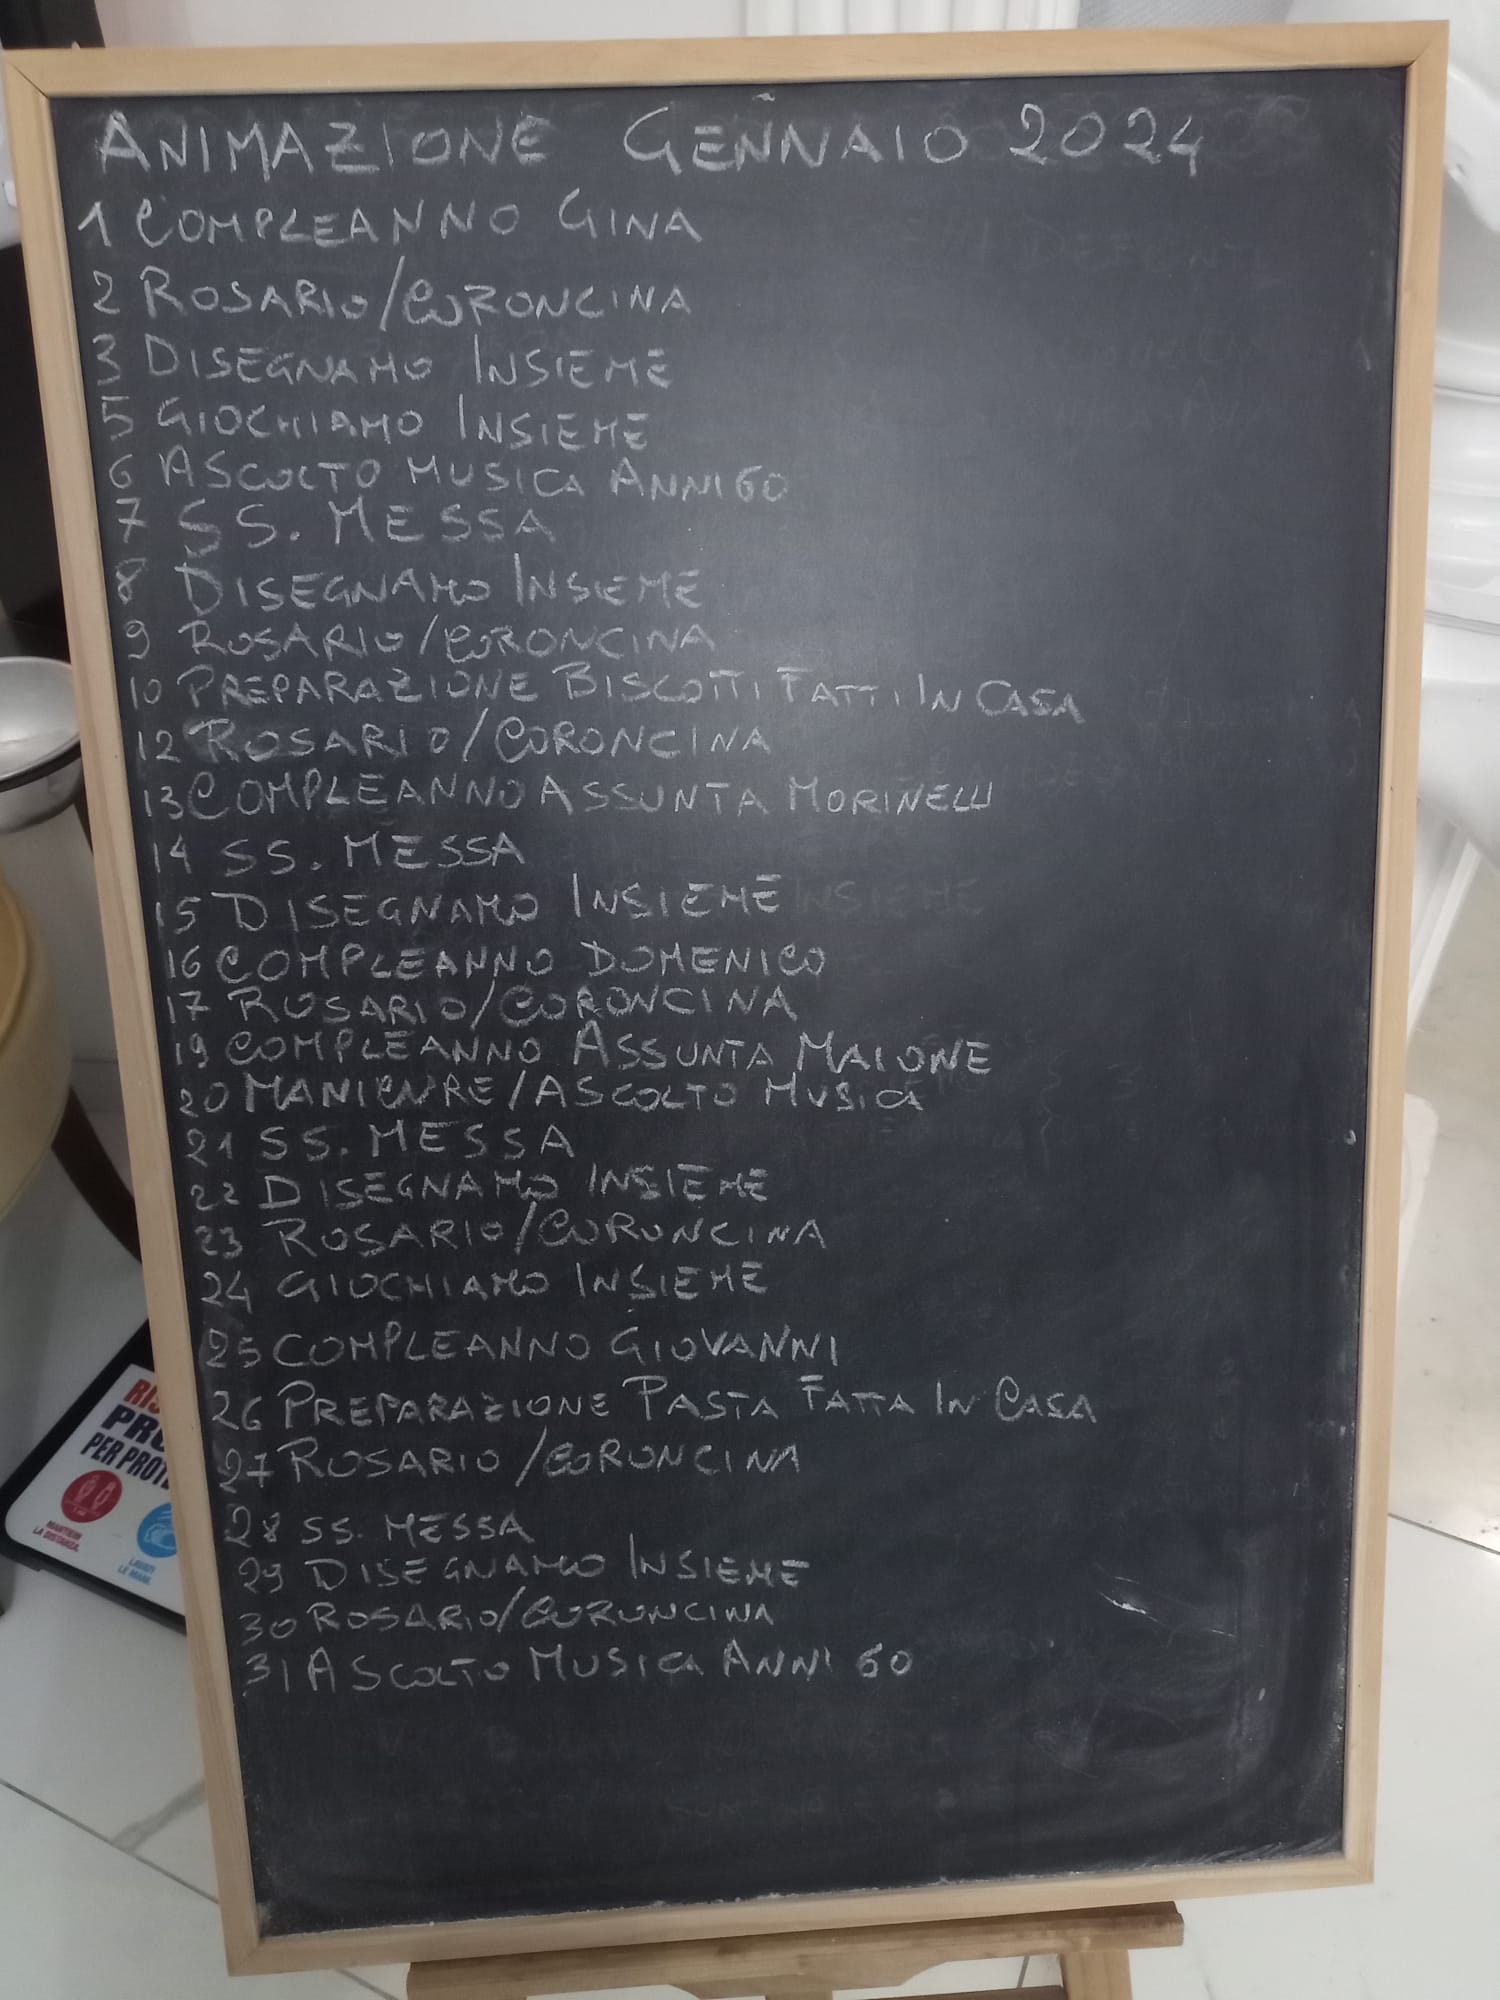 ANIMAZIONE GENNAIO 2024
1 COMPLEANNO GINA
2 ROSARIO/CORONCINA
3 DISEGNAMO INSIEME
5 GIOCHIAMO INSIEME
6 ASCOLTO MUSICA ANNI 60
7 SS. MESSA
8 DISEGNAMO INSIEME
9 ROSARIO/CORONCINA
10 PREPARAZIONE BISCOTTI FATTI IN CASA
12 ROSARIO/CORONCINA
13 COMPLEANNO ASSUNTA MORINELLI
14 SS. MESSA
15 DISEGNAMO INSIEME INSIEME
16 COMPLEANNO DOMENICO
17 ROSARIO/CORONCINA
19 COMPLEANNO ASSUNTA MAIONE
20 MANICURE/ASCOLTO MUSICA
21 SS. MESSA
22 DISEGNAMO INSIEME
23 ROSARIO/CORONCINA
24 GIOCHIAMO INSIEME
25 COMPLEANNO GIOVANNI
26 PREPARAZIONE PASTA FATTA IN CASA
27 ROSARIO/CORONCINA
28 SS. MESSA
29 DISEGNAMO INSIEME
30 ROSARIO/CORONCINA
31 ASCOLTO MUSICA ANNI 60
PER
MANTIENI
LA DISTANZA.
LAVATI
LE MANI.